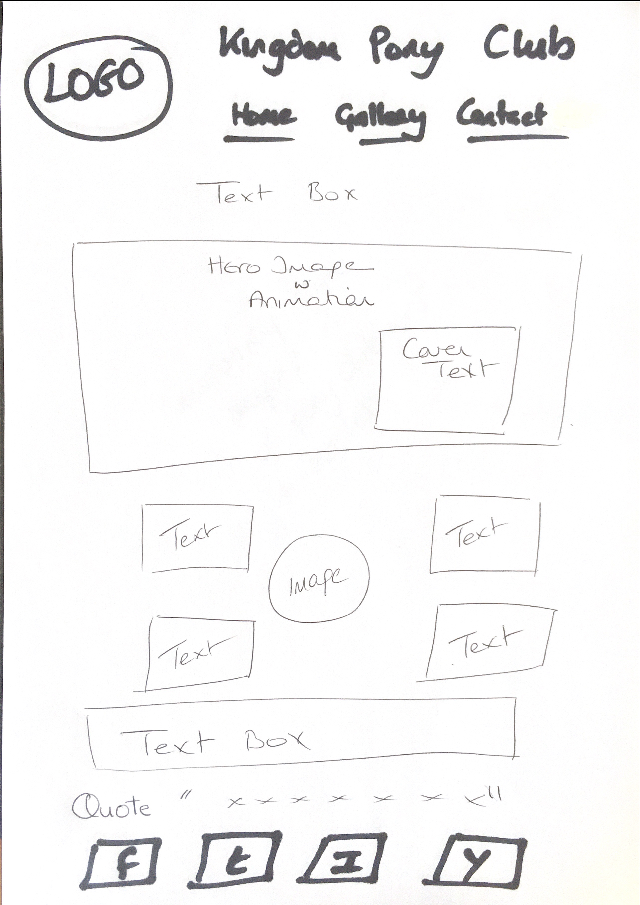 LOGO
Kingdom Pony Club
Home Gallery Contact
Text Box
Hero Image
w
Animation
Cover
Text
Text Text
Image
Text Text
Text Box
Quote " x x x x x x x "
f t I Y